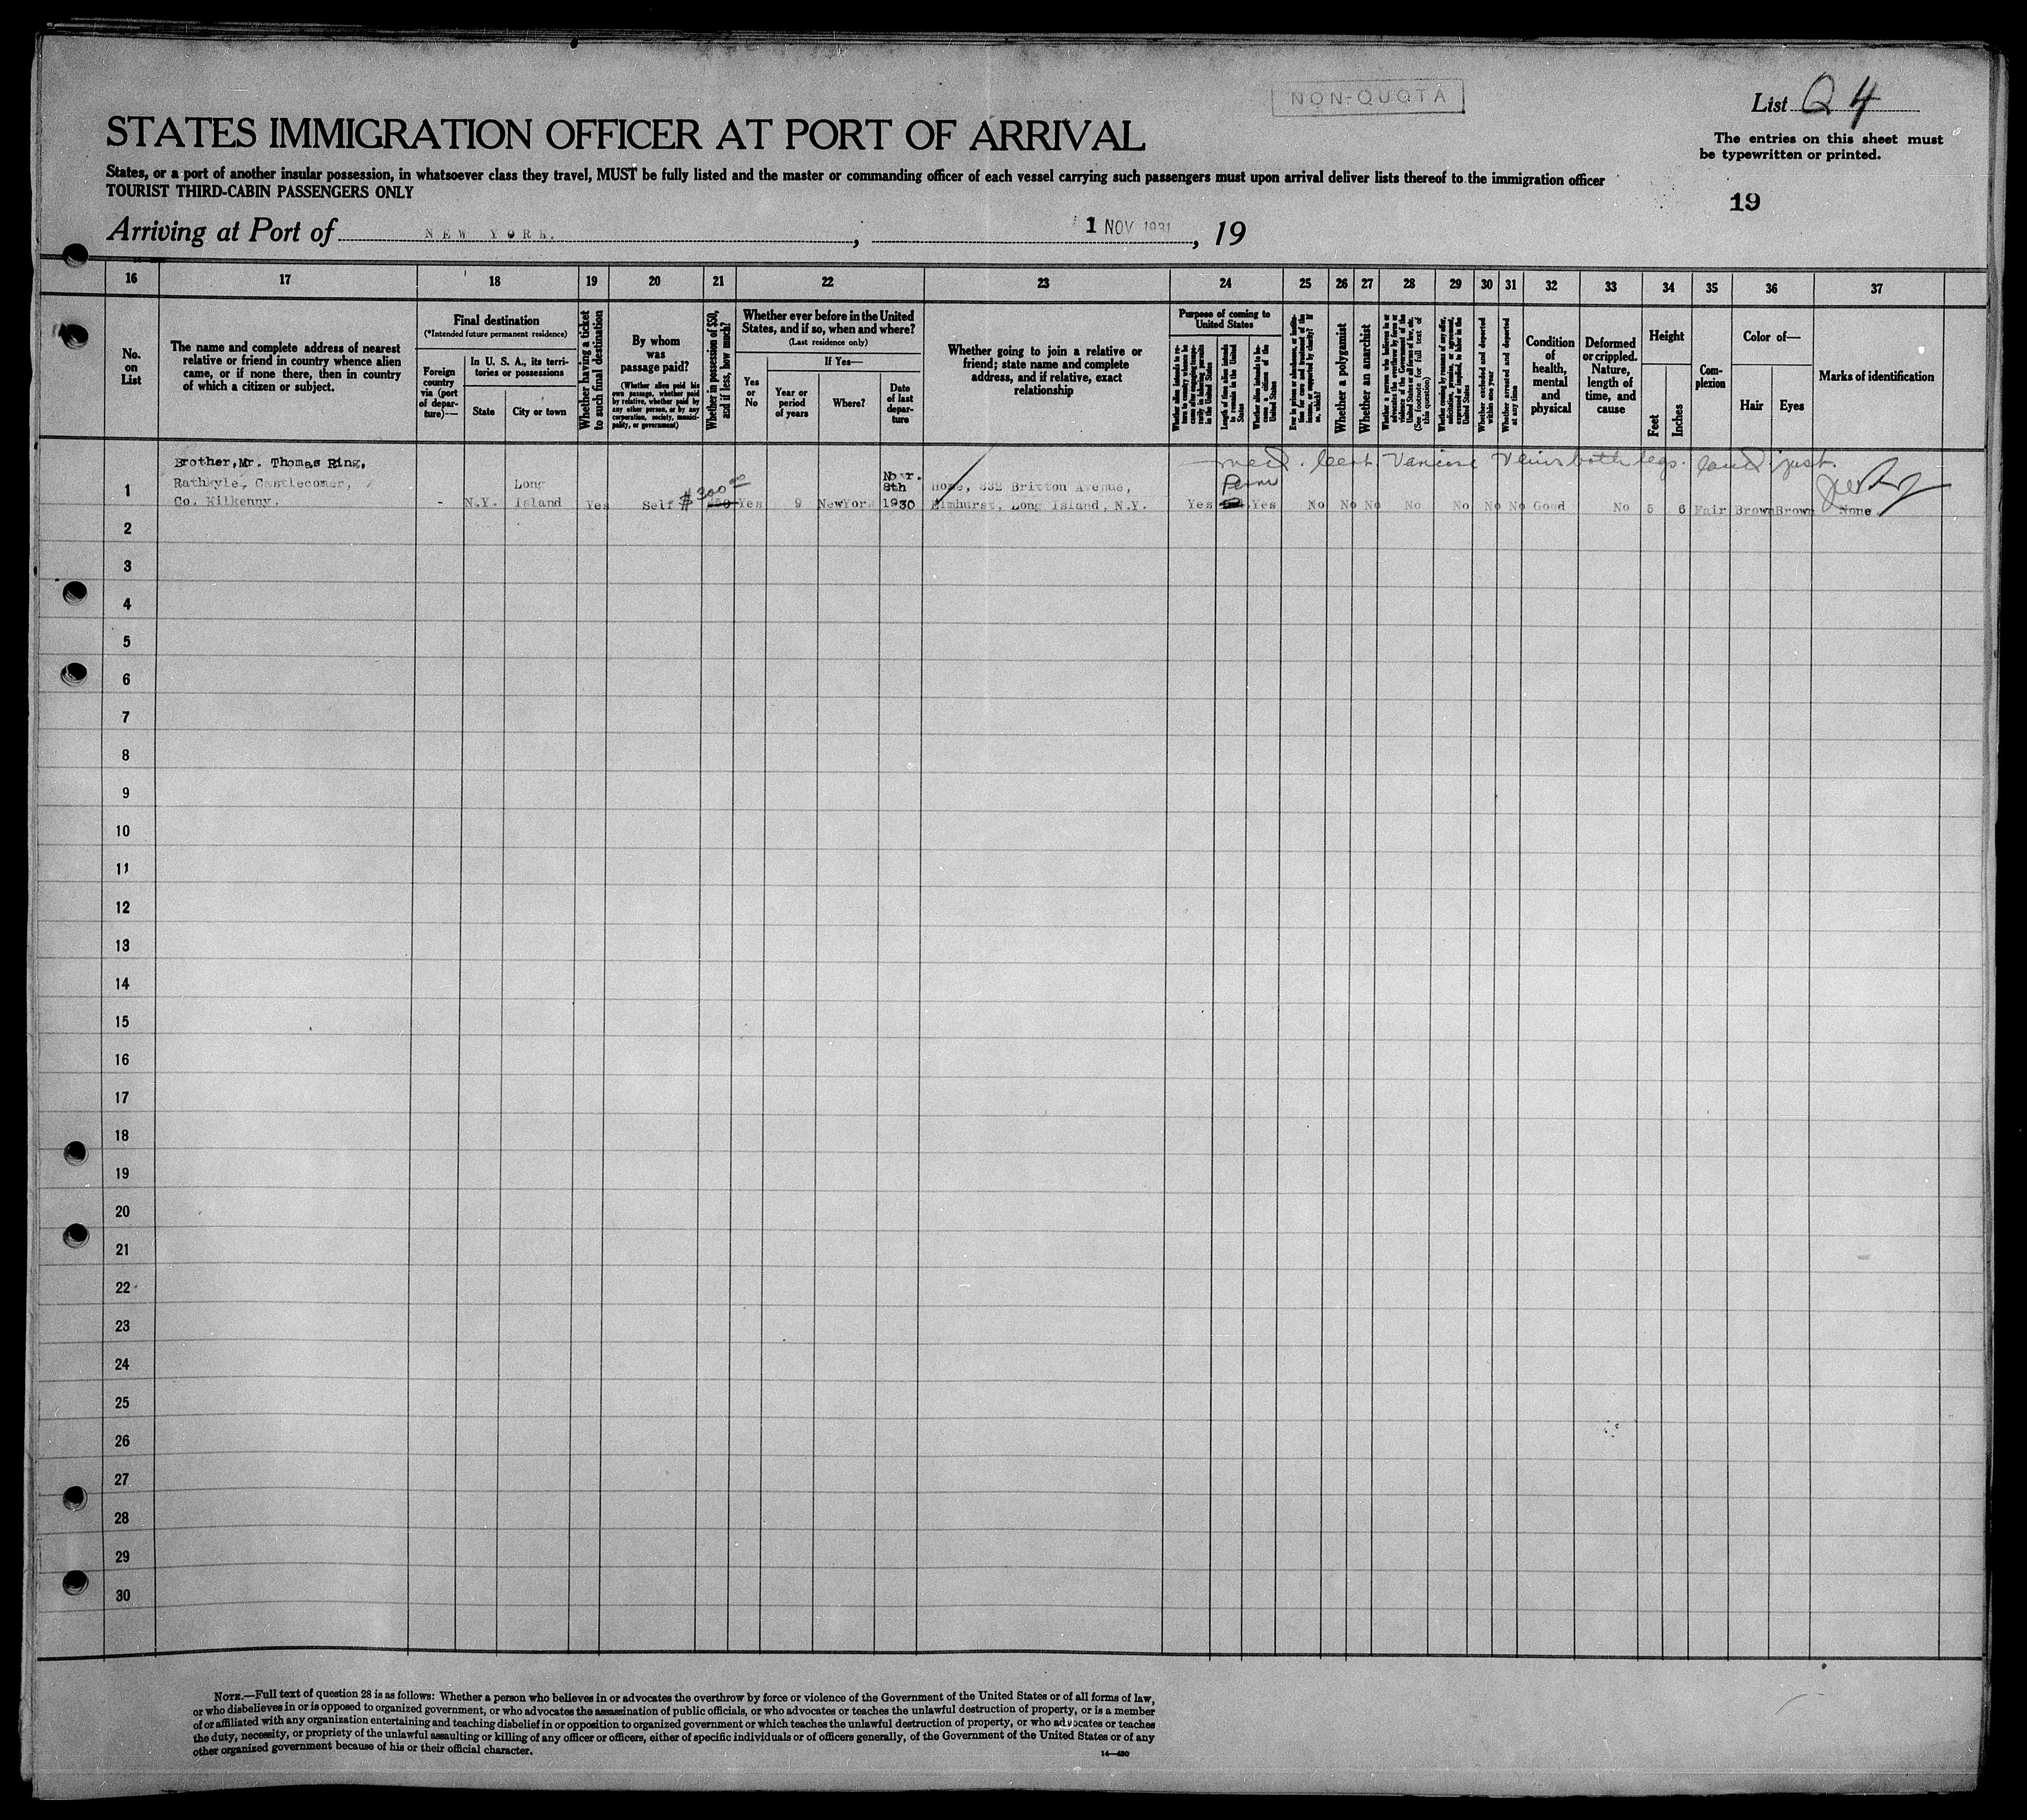 NON-QUOTA
List Q 4
STATES IMMIGRATION OFFICER AT PORT OF ARRIVAL
The entries on this sheet must
be typewritten or printed.
States, or a port of another insular possession, in whatsoever class they travel, MUST be fully listed and the master or commanding officer of each vessel carrying such passengers must upon arrival deliver lists thereof to the immigration officer
TOURIST THIRD-CABIN PASSENGERS ONLY
19
Arriving at Port of NEW YORK. , 1 NOV 1931 , 19
16 17 18 19 20 21 22 23 24 25 26 27 28 29 30 31 32 33 34 35 36 37
No.
on
List
The name and complete address of nearest
relative or friend in country whence alien
came, or if none there, then in country
of which a citizen or subject.
Final destination
(*Intended future permanent residence)
Foreign
country
via (port
of depar-
ture)—
In U. S. A., its terri-
tories or possessions
State
City or town
Whether having a ticket
to such final destination
By whom
was
passage paid?
(Whether alien paid his
own passage, whether paid
by relative, whether paid by
any other person, or by any
corporation, society, munici-
pality, or government)
Whether in possession of $50,
and if less, how much?
Whether ever before in the United
States, and if so, when and where?
(Last residence only)
Yes
or
No
If Yes—
Year or
period
of years
Where?
Date
of last
depar-
ture
Whether going to join a relative or
friend; state name and complete
address, and if relative, exact
relationship
Purpose of coming to
United States
Whether alien intends to re-
turn to country whence he
came after engaging tempo-
rarily in laboring pursuits
in the United States
Length of time alien intends
to remain in the United
States
Whether alien intends to be-
come a citizen of the
United States
Ever in prison or almshouse, or institu-
tion for care and treatment of the
insane, or supported by charity? If
so, which?
Whether a polygamist
Whether an anarchist
Whether a person who believes in or
advocates the overthrow by force or
violence of the Government of the
United States or all forms of law, etc.
(See footnote for full text of
this question)
Whether coming by reason of any offer,
solicitation, promise, or agreement,
expressed or implied, to labor in the
United States
Whether excluded and deported
within one year
Whether arrested and deported
at any time
Condition
of
health,
mental
and
physical
Deformed
or crippled.
Nature,
length of
time, and
cause
Height
Feet
Inches
Com-
plexion
Color of—
Hair
Eyes
Marks of identification
Brother, Mr. Thomas Ring,
Rathkyle, Castlecomer,
Co. Kilkenny.
med. cert. Varicose Veins both legs.
1 - N.Y. Long Island Yes Self $300 00 $50 Yes 9 NewYork Novr. 8th 1930 Home, 832 Britton Avenue,
Elmhurst, Long Island, N.Y. Yes Perm Yes No No No No No No No Good No 5 6 Fair Brown Brown None
2
3
4
5
6
7
8
9
10
11
12
13
14
15
16
17
18
19
20
21
22
23
24
25
26
27
28
29
30
NOTE.—Full text of question 28 is as follows: Whether a person who believes in or advocates the overthrow by force or violence of the Government of the United States or of all forms of law,
or who disbelieves in or is opposed to organized government, or who advocates the assassination of public officials, or who advocates or teaches the unlawful destruction of property, or is a member
of or affiliated with any organization entertaining and teaching disbelief in or opposition to organized government or which teaches the unlawful destruction of property, or who advocates or teaches
the duty, necessity, or propriety of the unlawful assaulting or killing of any officer or officers, either of specific individuals or of officers generally, of the Government of the United States or of any
other organized government because of his or their official character.
14—480